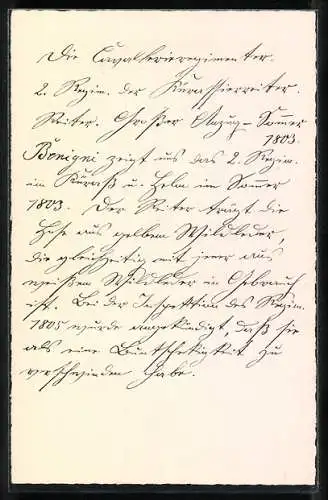 Die Cavallerieregimenter.
2. Regim. der Kürassierreiter.
Reiter. Großer Anzug - Sommer
1803.
Benigni zeigt uns das 2. Regim.
im Küraß u. Helm im Sommer
1803. Der Reiter trägt die
Hose aus gelbem Wildleder,
die gleichzeitig mit jener aus
weißem Wildleder in Gebrauch
ist. Bei der Inspektion des Regim.
1805 wurde angekündigt, daß sie
als eine Buntscheckigkeit zu
verschwinden habe.